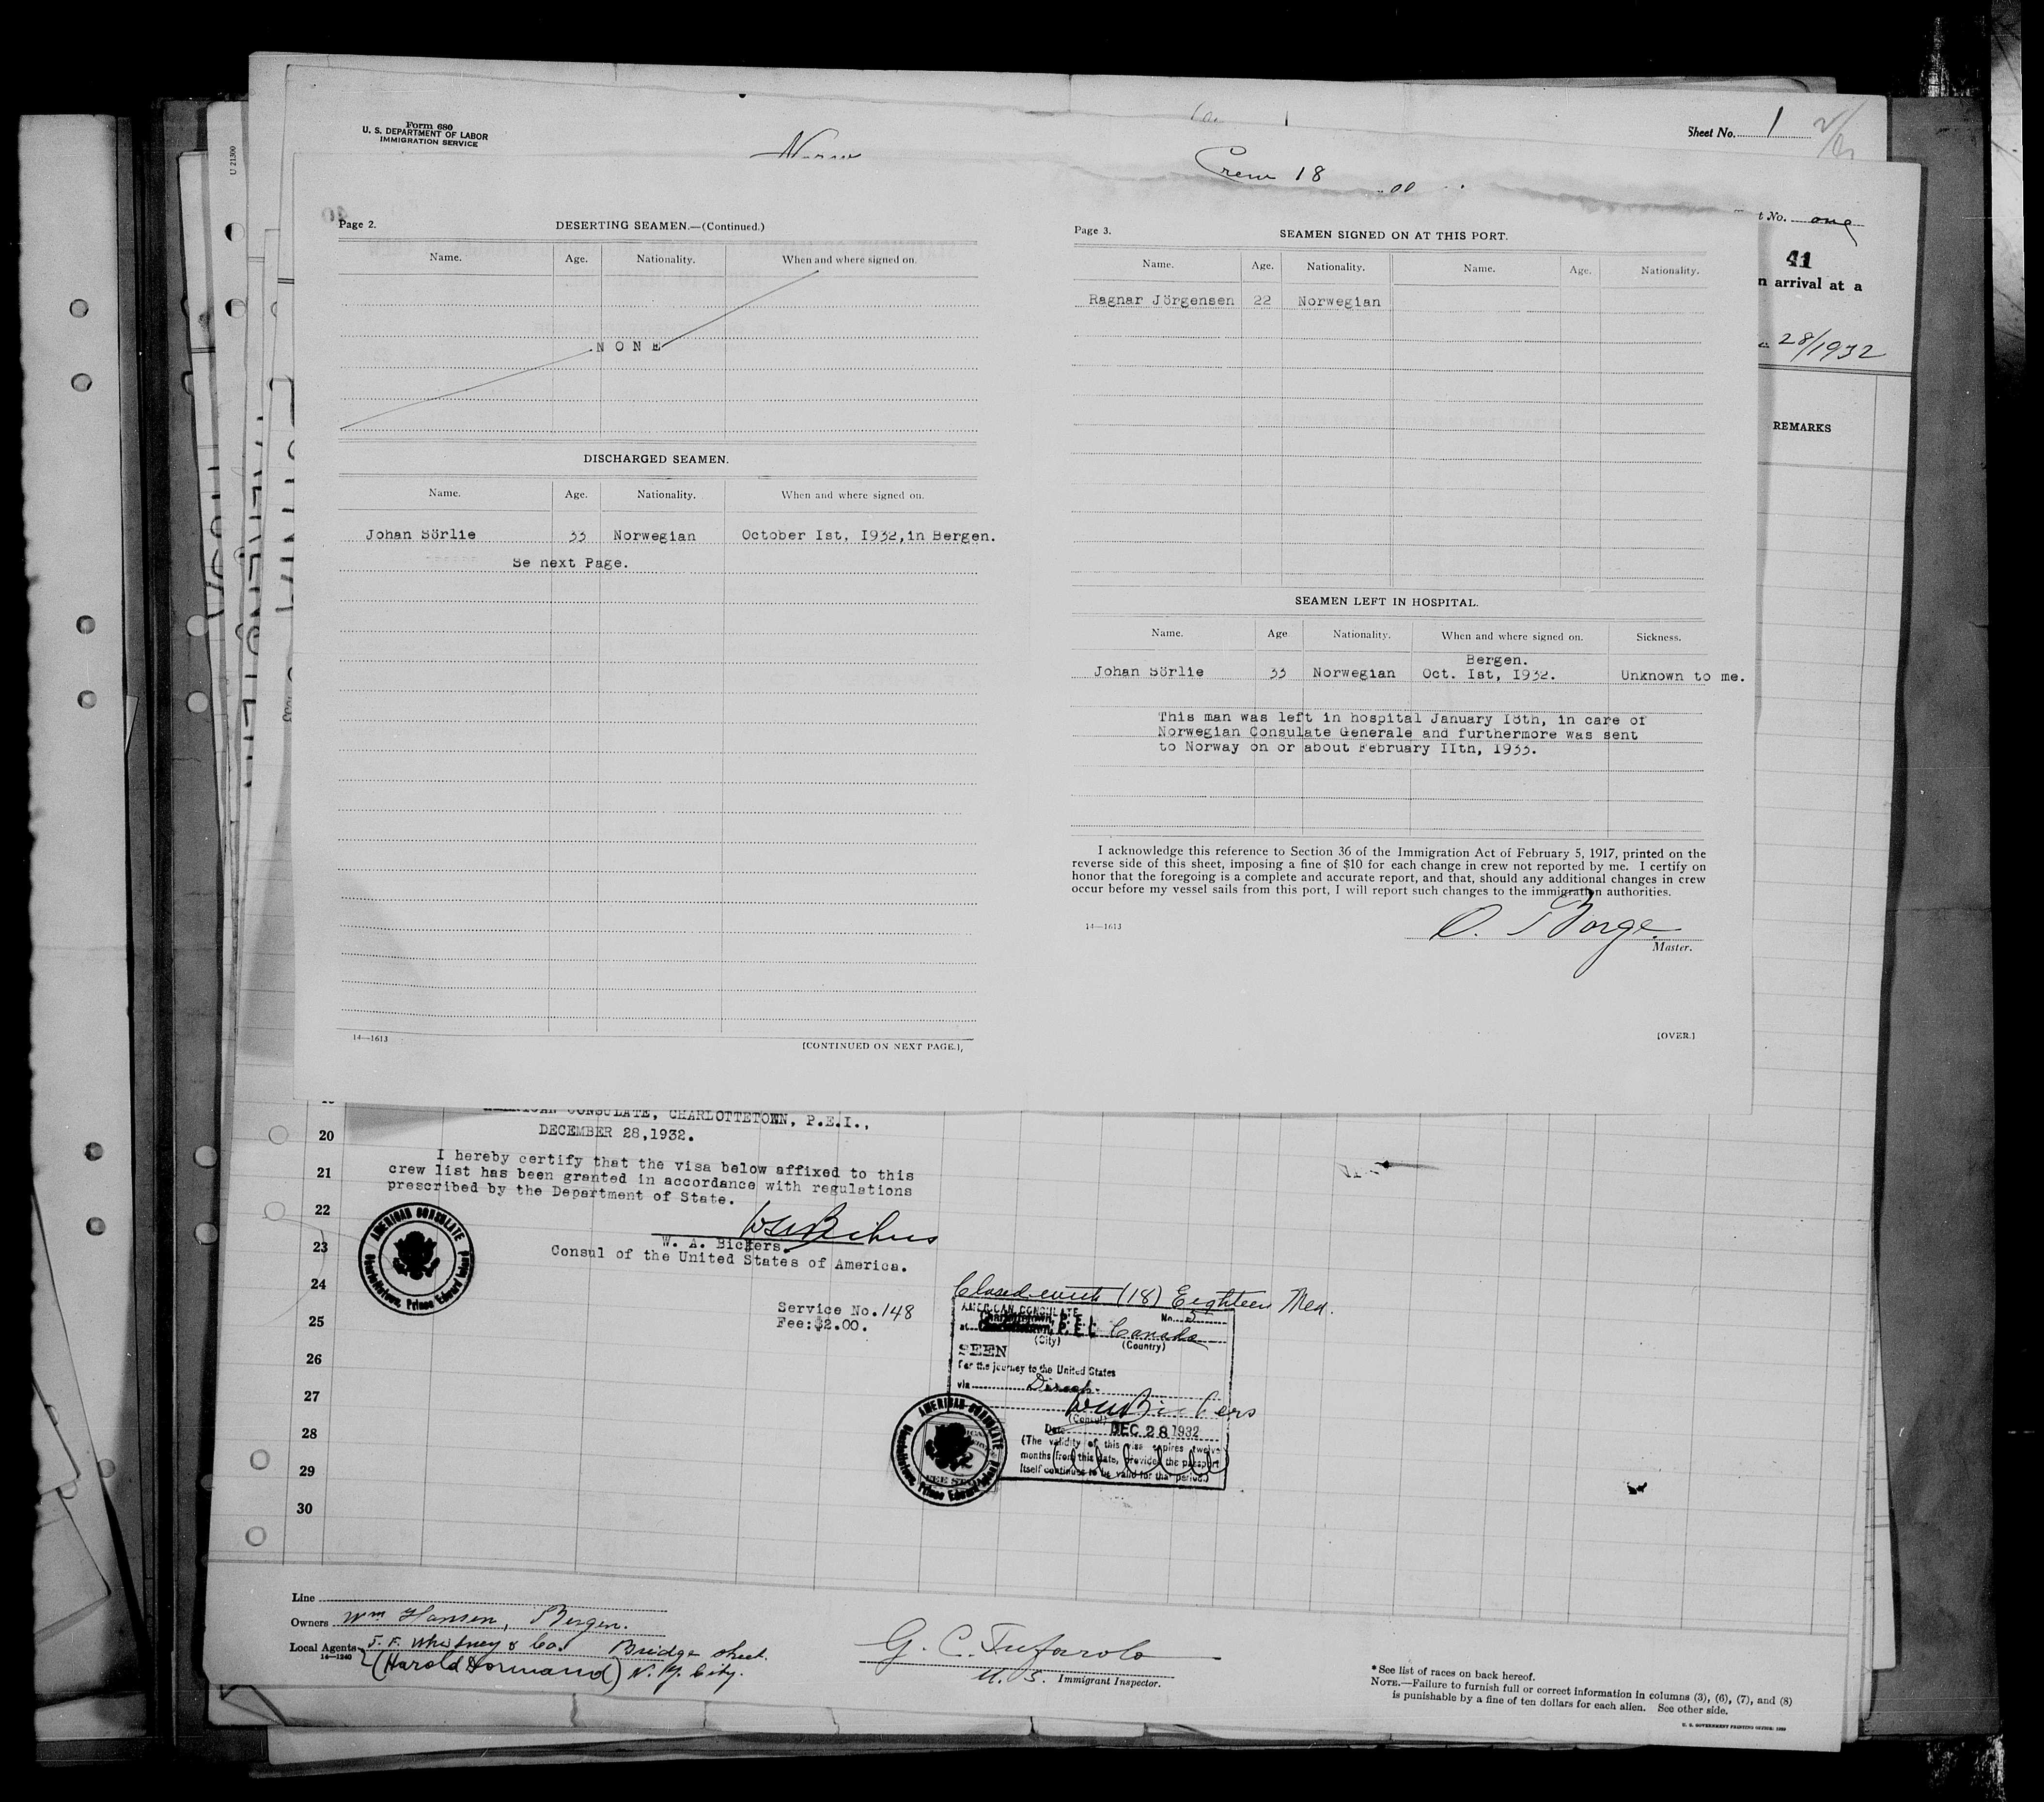 Form 680
U. S. DEPARTMENT OF LABOR
IMMIGRATION SERVICE
Sheet No. 1
U 21300
Crew 18
t No. one
41
n arrival at a
28/1932
REMARKS
Page 2.
DESERTING SEAMEN.—(Continued.)
Name. Age. Nationality. When and where signed on.
NONE
DISCHARGED SEAMEN.
Name. Age. Nationality. When and where signed on.
Johan Sörlie 33 Norwegian October Ist, I932, in Bergen.
Se next Page.
14—1613
[CONTINUED ON NEXT PAGE.]
Page 3.
SEAMEN SIGNED ON AT THIS PORT.
Name. Age. Nationality. Name. Age. Nationality.
Ragnar Jörgensen 22 Norwegian
SEAMEN LEFT IN HOSPITAL.
Name. Age Nationality. When and where signed on. Sickness.
Bergen.
Johan Sörlie 33 Norwegian Oct. Ist, I932. Unknown to me.
This man was left in hospital January I8th, in care of
Norwegian Consulate Generale and furthermore was sent
to Norway on or about February IIth, I933.
I acknowledge this reference to Section 36 of the Immigration Act of February 5, 1917, printed on the
reverse side of this sheet, imposing a fine of $10 for each change in crew not reported by me. I certify on
honor that the foregoing is a complete and accurate report, and that, should any additional changes in crew
occur before my vessel sails from this port, I will report such changes to the immigration authorities.
O. Borge
14—1613
Master.
[OVER.]
AMERICAN CONSULATE, CHARLOTTETOWN, P.E.I.,
DECEMBER 28,1932.
I hereby certify that the visa below affixed to this
crew list has been granted in accordance with regulations
prescribed by the Department of State.
W. A. Bickers,
Consul of the United States of America.
AMERICAN CONSULATE
Charlottetown, Prince Edward Island
Service No. 148
Fee:$2.00.
20
21
22
23
24
25
26
27
28
29
30
Closed with (18) Eighteen Men.
AMERICAN CONSULATE
No. 5
at Charlottetown, P. E. I. Canada
(City) (Country)
SEEN
For the journey to the United States
via Direct
(Consul)
Date DEC 28 1932
(The validity of this visa expires twelve
months from this date, provided the passport
itself continues to be valid for that period.)
AMERICAN CONSULATE
Charlottetown, Prince Edward Island
Line
Owners Wm Hansen, Bergen.
Local Agents J. F. Whitney & Co. Bridge street.
14—1240
(Harold Dormand) N. Y. City.
G. C. Tufarolo
U. S. Immigrant Inspector.
* See list of races on back hereof.
NOTE.—Failure to furnish full or correct information in columns (3), (6), (7), and (8)
is punishable by a fine of ten dollars for each alien. See other side.